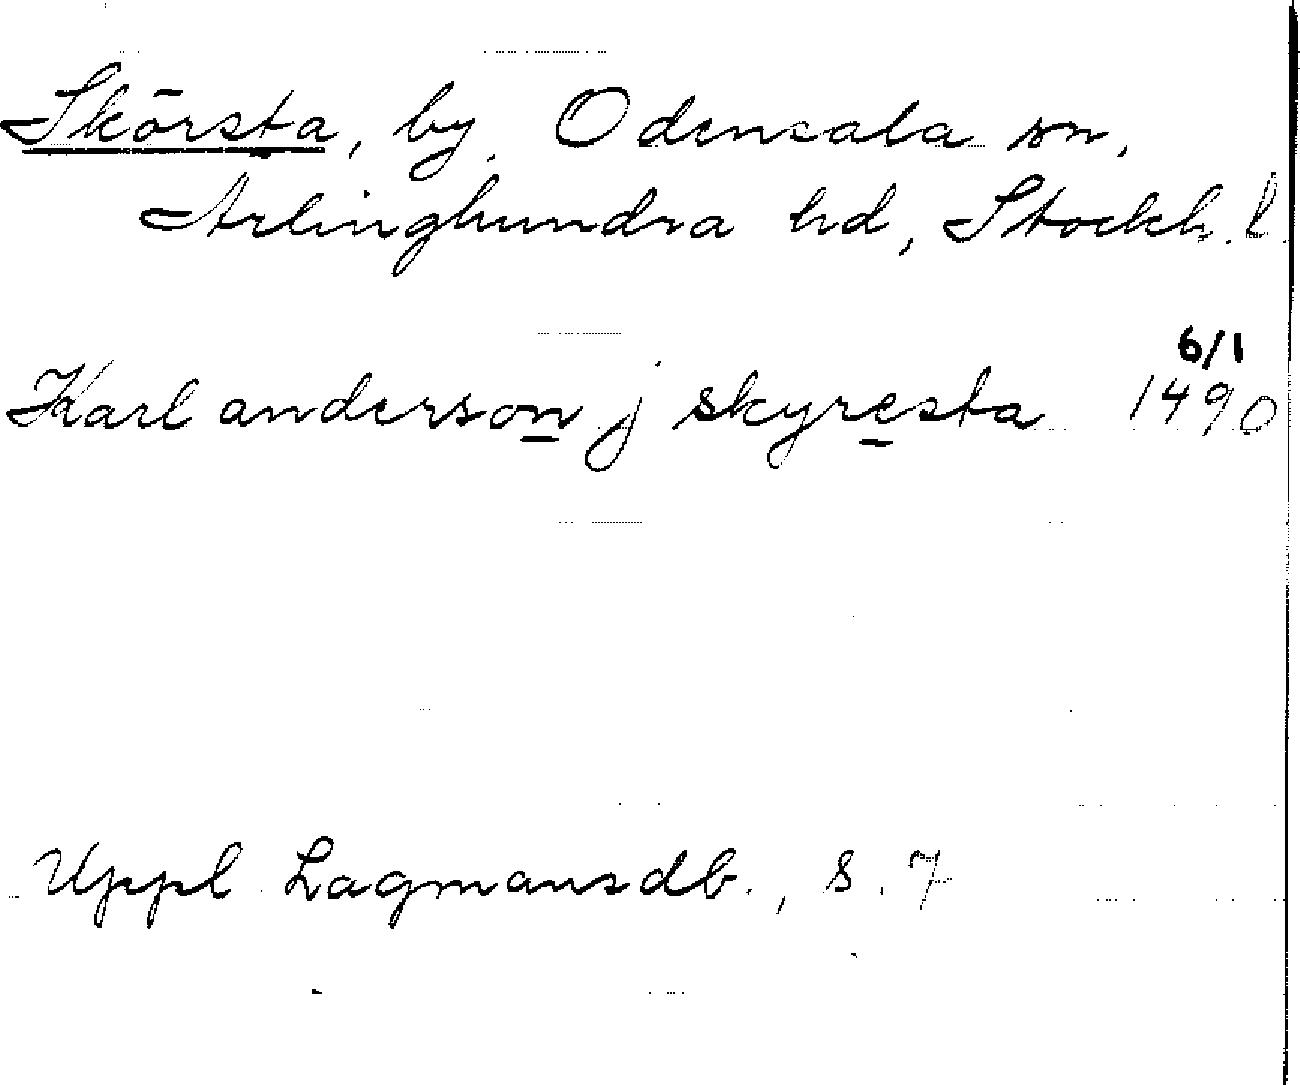 Skörsta, by, Odensala sn,
Ärlinghundra hd, Stockh. l.
6/1
Karl anderson j skyresta 1490
Uppl Lagmansdb., s. 7